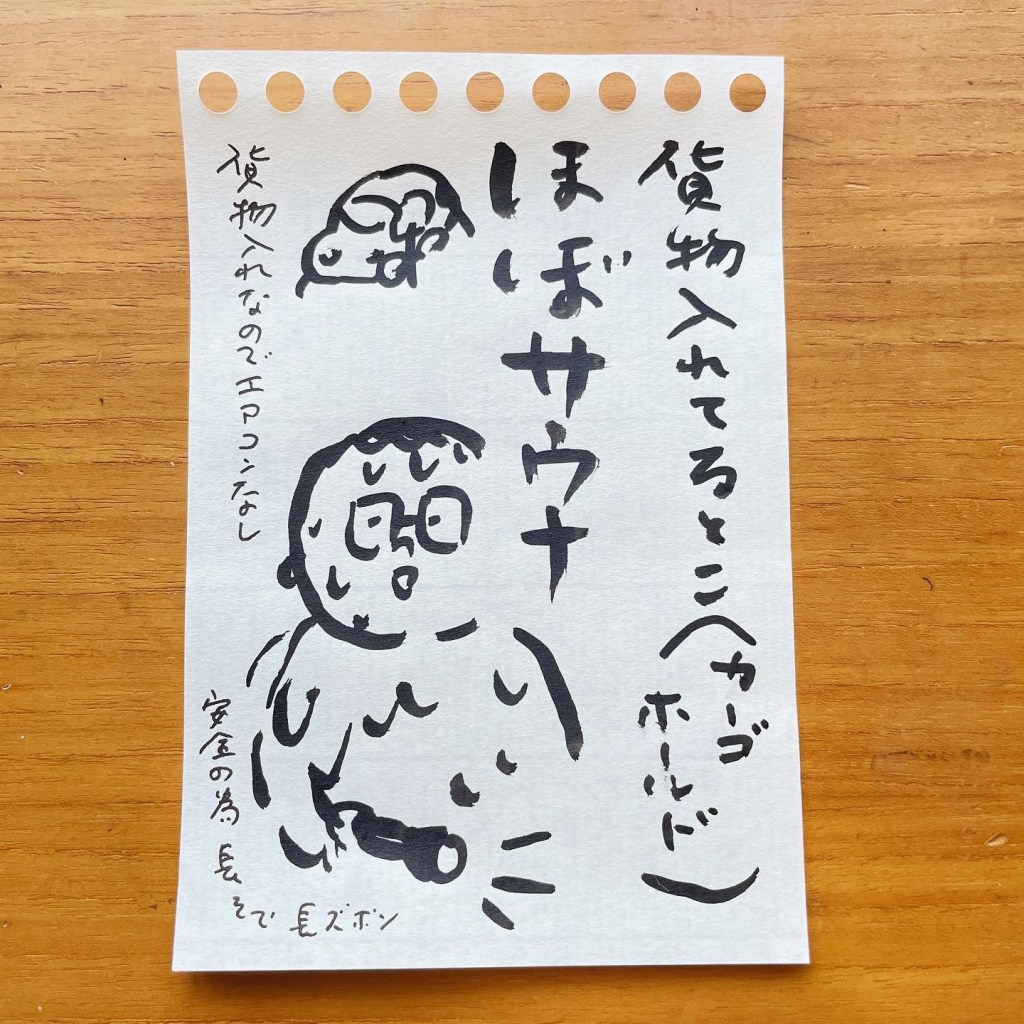 貨物入れてるとこ（カーゴ
ホールド）
ほぼサウナ
貨物入れなのでエアコンなし
安全の為 長そで 長ズボン